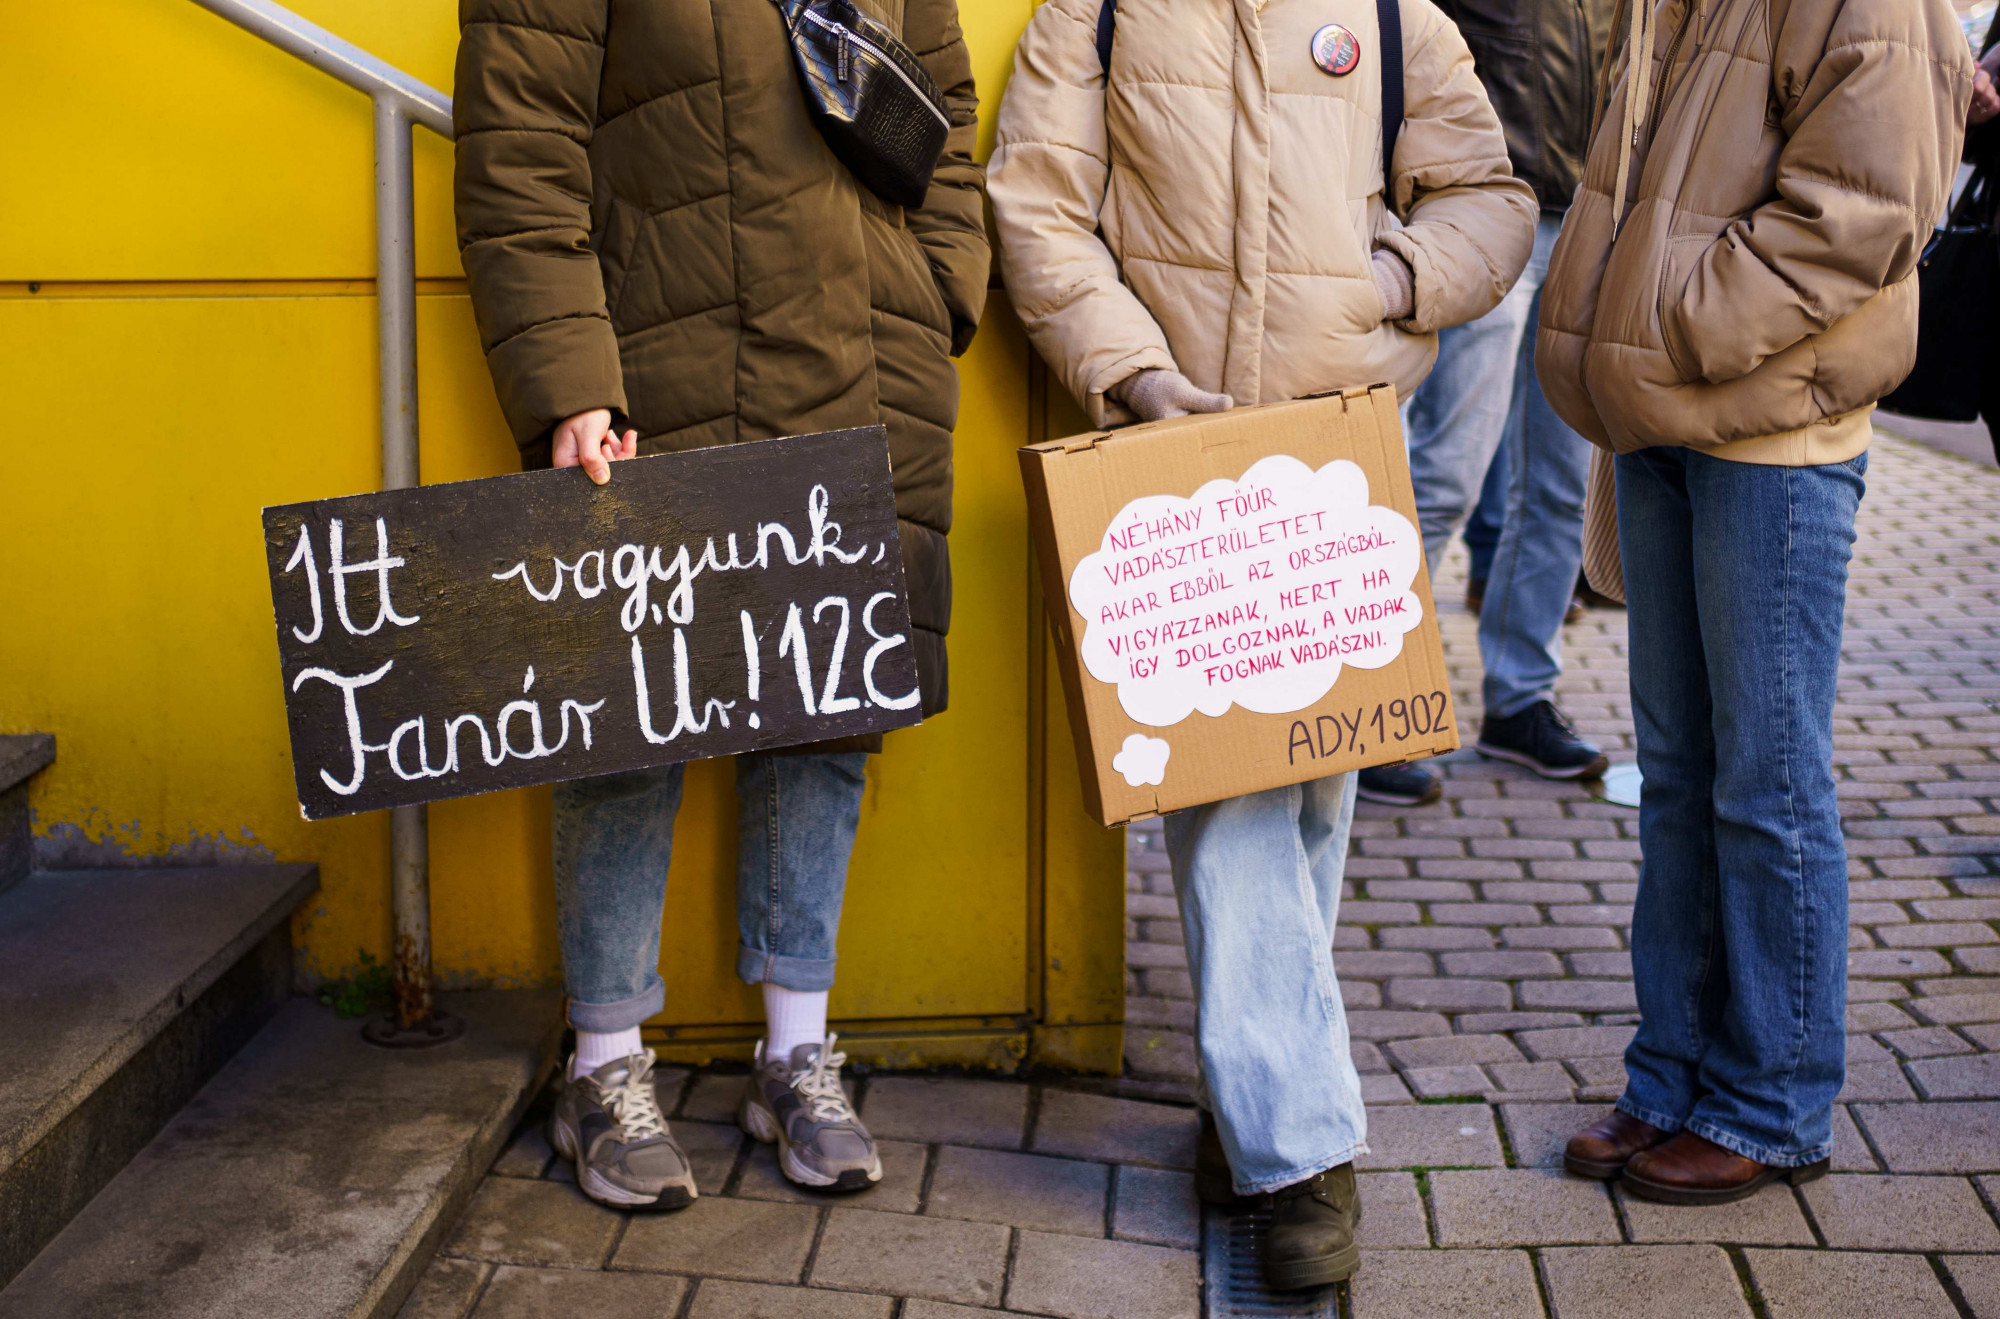 Itt vagyunk,
Tanár Úr! 12.E
NÉHÁNY FŐÚR
VADÁSZTERÜLETET
AKAR EBBŐL AZ ORSZÁGBÓL.
VIGYÁZZANAK, MERT HA
ÍGY DOLGOZNAK, A VADAK
FOGNAK VADÁSZNI.
ADY, 1902